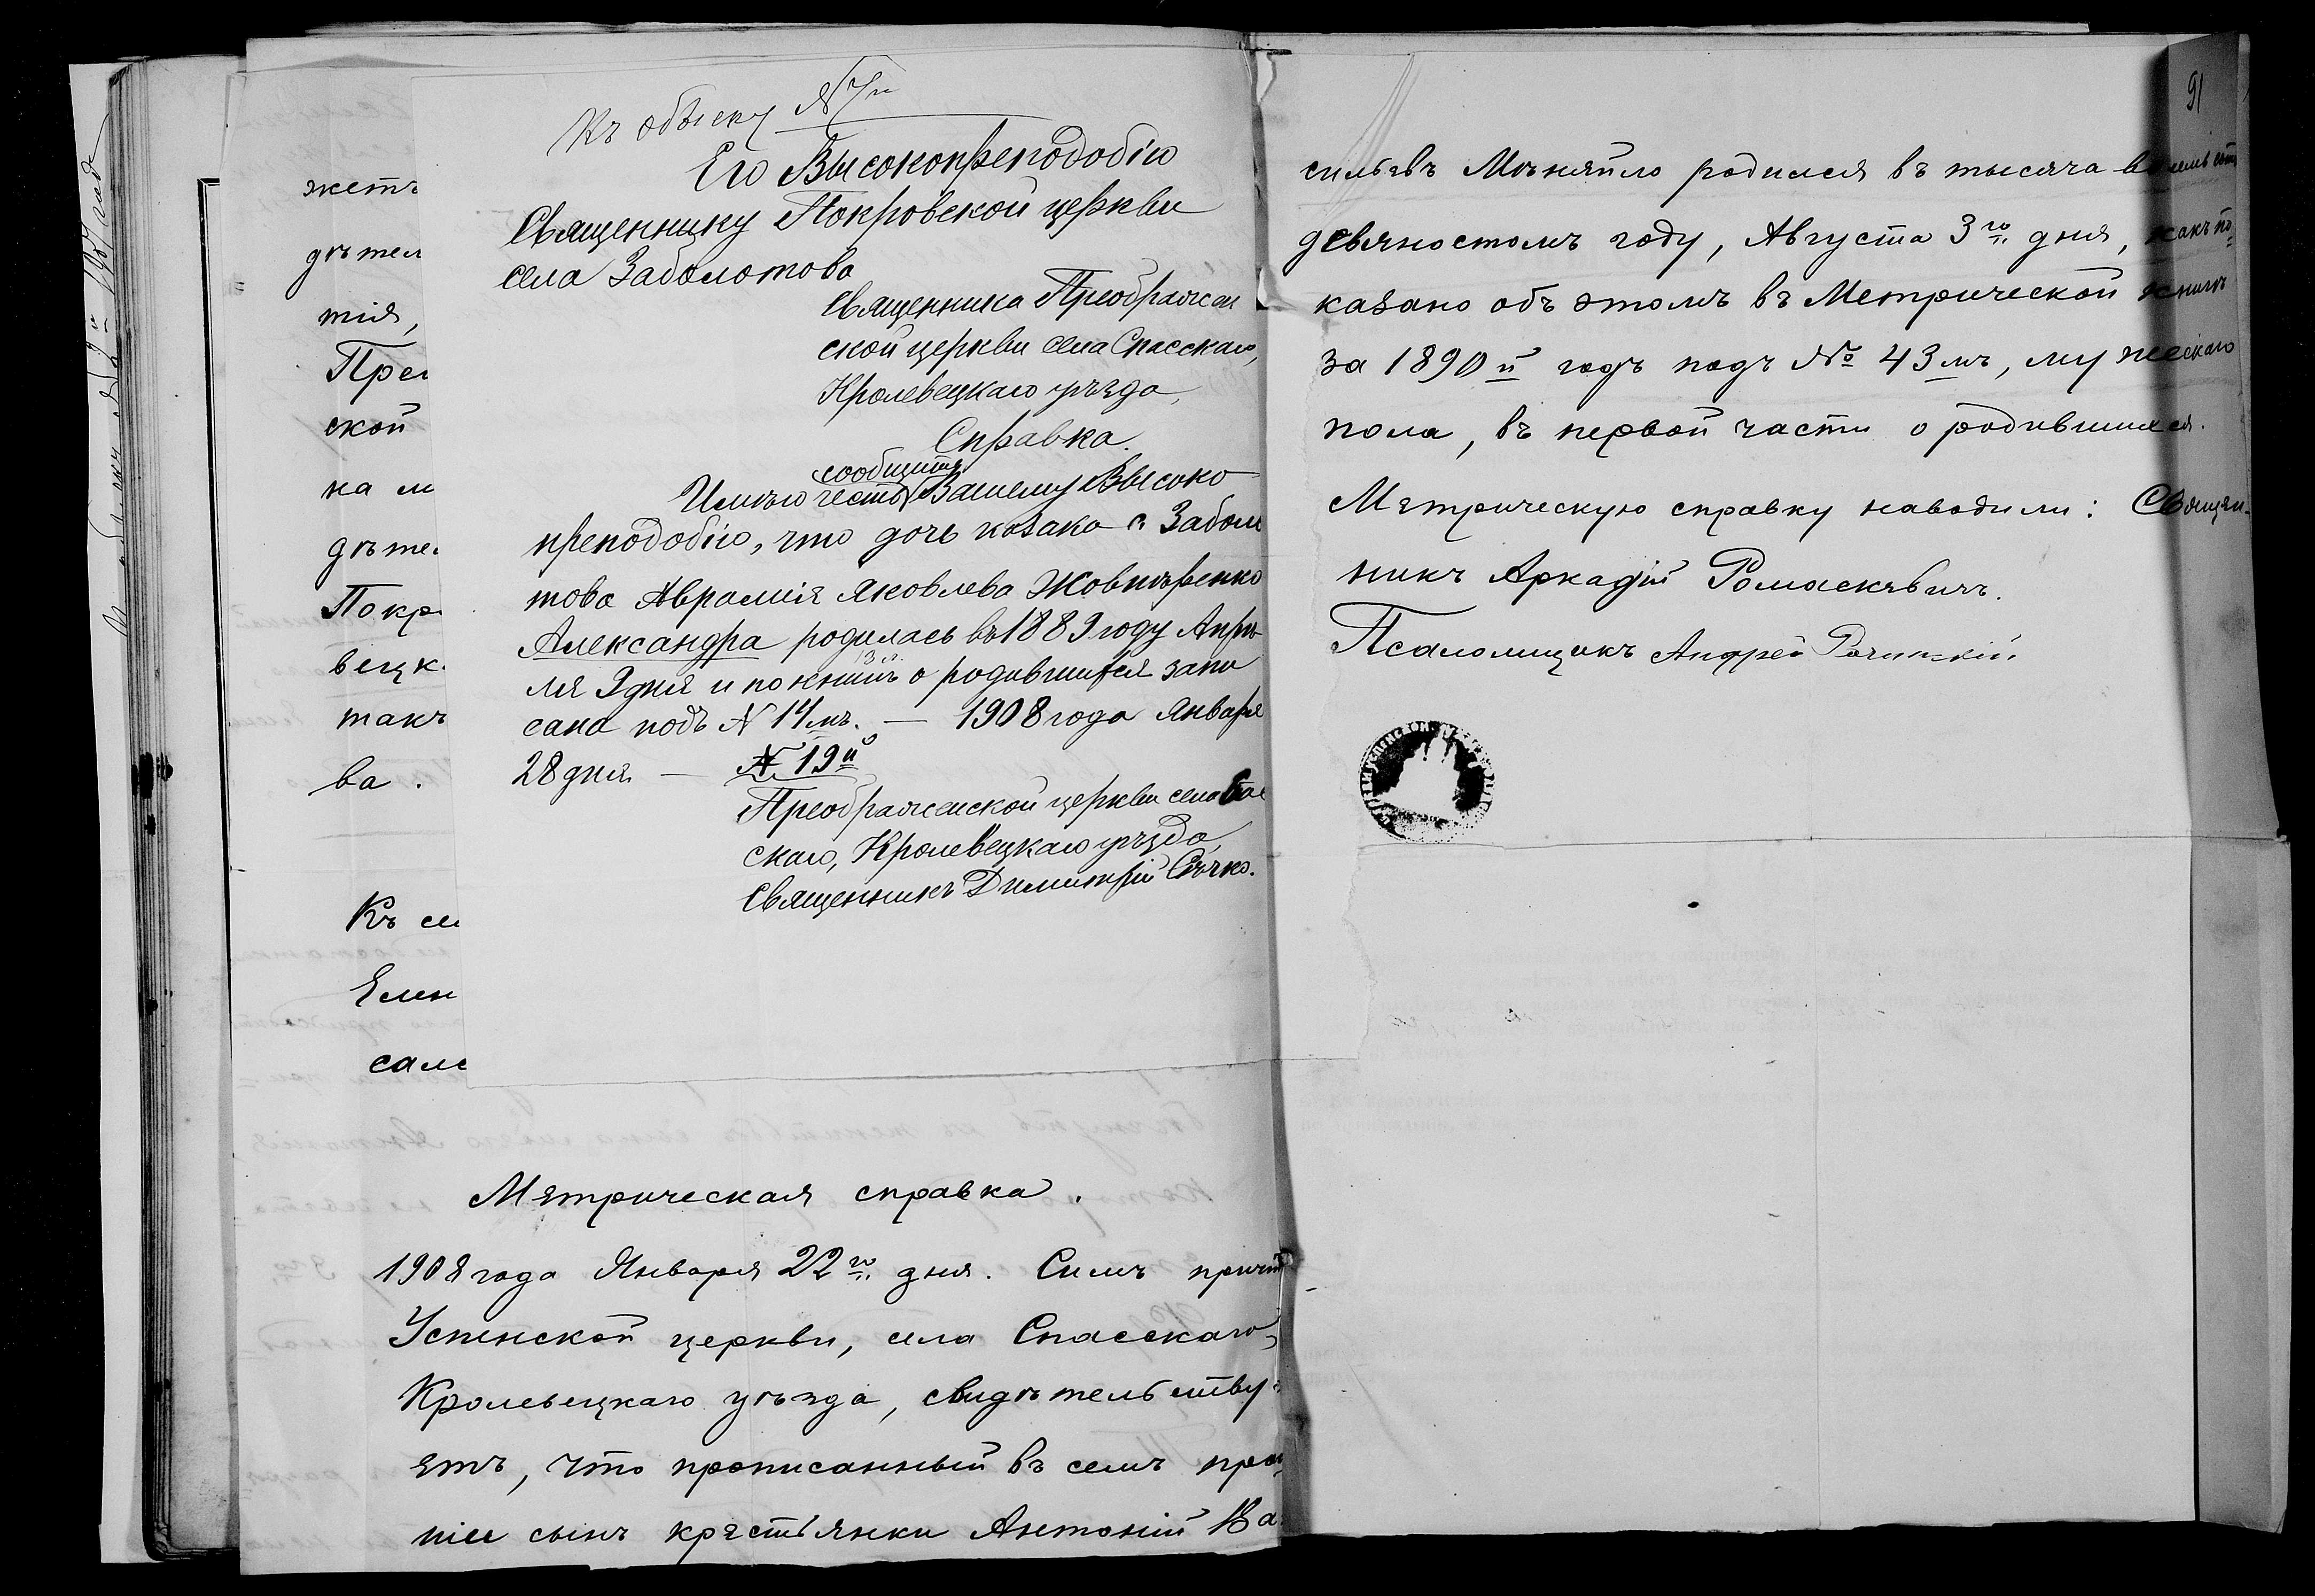 Къ обыску № 7й
Его Высокопреподобію
Священнику Покровской церкви
села Заболотова
Священника Преображен
ской церкви села Спасскаго,
Кролевецкаго уѣзда,
Справка.
сообщить
Имѣю честь Вашему Высоко
преподобію, что дочь козака с. Забол
това Аврамія Яковлева Жовтѣренко
Александра родилась въ 1889 году Апрѣ
ля 9 дня и по книгѣ о родившихся запи
сана подъ № 14мъ. — 1908 года Января
28 дня — № 19й
Преображенской церкви села Спас
скаго, Кролевецкаго уѣзда,
Священникъ Димитрій
жетъ
дѣтел
тія,
Прео
ской
на м
дѣте
Покр
вецк
такъ
ва.
Къ се
Елен
само
Метрическая справка.
1908 года Января 22го дня. Симъ причтъ
Успенской церкви, села Спасскаго,
Кролевецкаго уѣзда, свидѣтельству-
етъ, что прописанный въ семъ
сынъ крестьянки Антоній Ва-
91
сильевъ Мѣняйло родился въ тысяча восемьсотъ
девяностомъ году, Августа 3го дня, какъ по-
казано объ этомъ въ Метрической книгѣ
за 1890й годъ подъ № 43мъ, мужескаго
пола, въ первой части о родившихся.
Метрическую справку наводили: Священ-
никъ Аркадій Ромаскевичъ.
Псаломщикъ Андрей